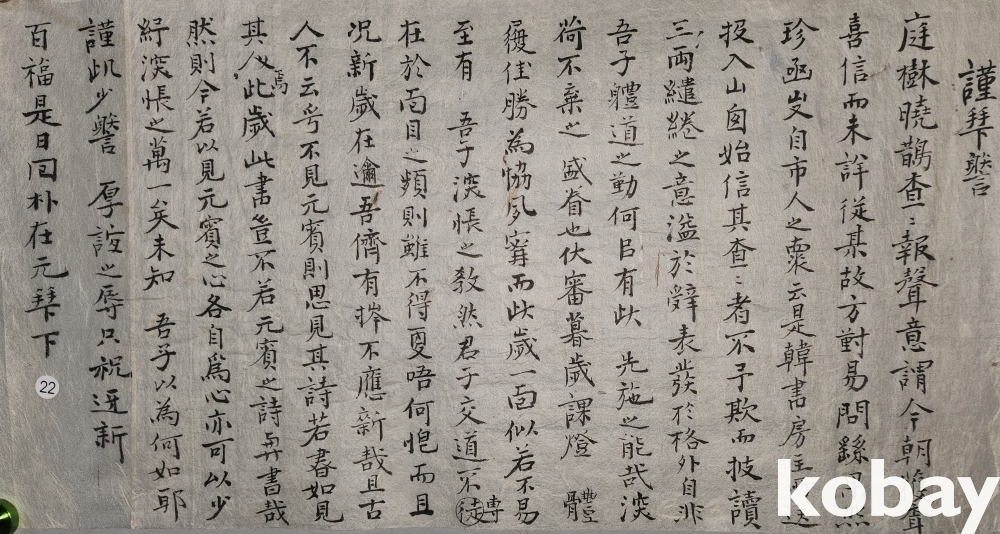 謹拜謦
庭樹曉鵲查〻報聲意謂今朝
喜信而未詳從某故方對易問繇
珍函叟自市人之橐云是韓書房主
投入山囱始信其查〻者不予欺而披讀
三兩繾綣之意溢於辭表發於格外自非
吾子軆道之勤何㠯有此 先施之能哉深
荷不棄之 盛眷也伏審暮歲課燈 軆
履佳勝為協夙窾而此歲一面似若不易
至有 吾子深悵之敎然君子交道不專
在於面目之頻則雖不得更唔何悒而且
況新歲在邇吾儕有擠不應新哉且古
人不云乎不見元賓則思見其詩若書如見
其人焉此歲此書豈不若元賓之詩與書哉
然則今若以見元賓之心各自爲心亦可以少
紓深悵之萬一矣未知 吾子以為何如耶
謹此少謦 厚誼之辱只祝迓新
百福是日回朴在元拜下
22
kobay